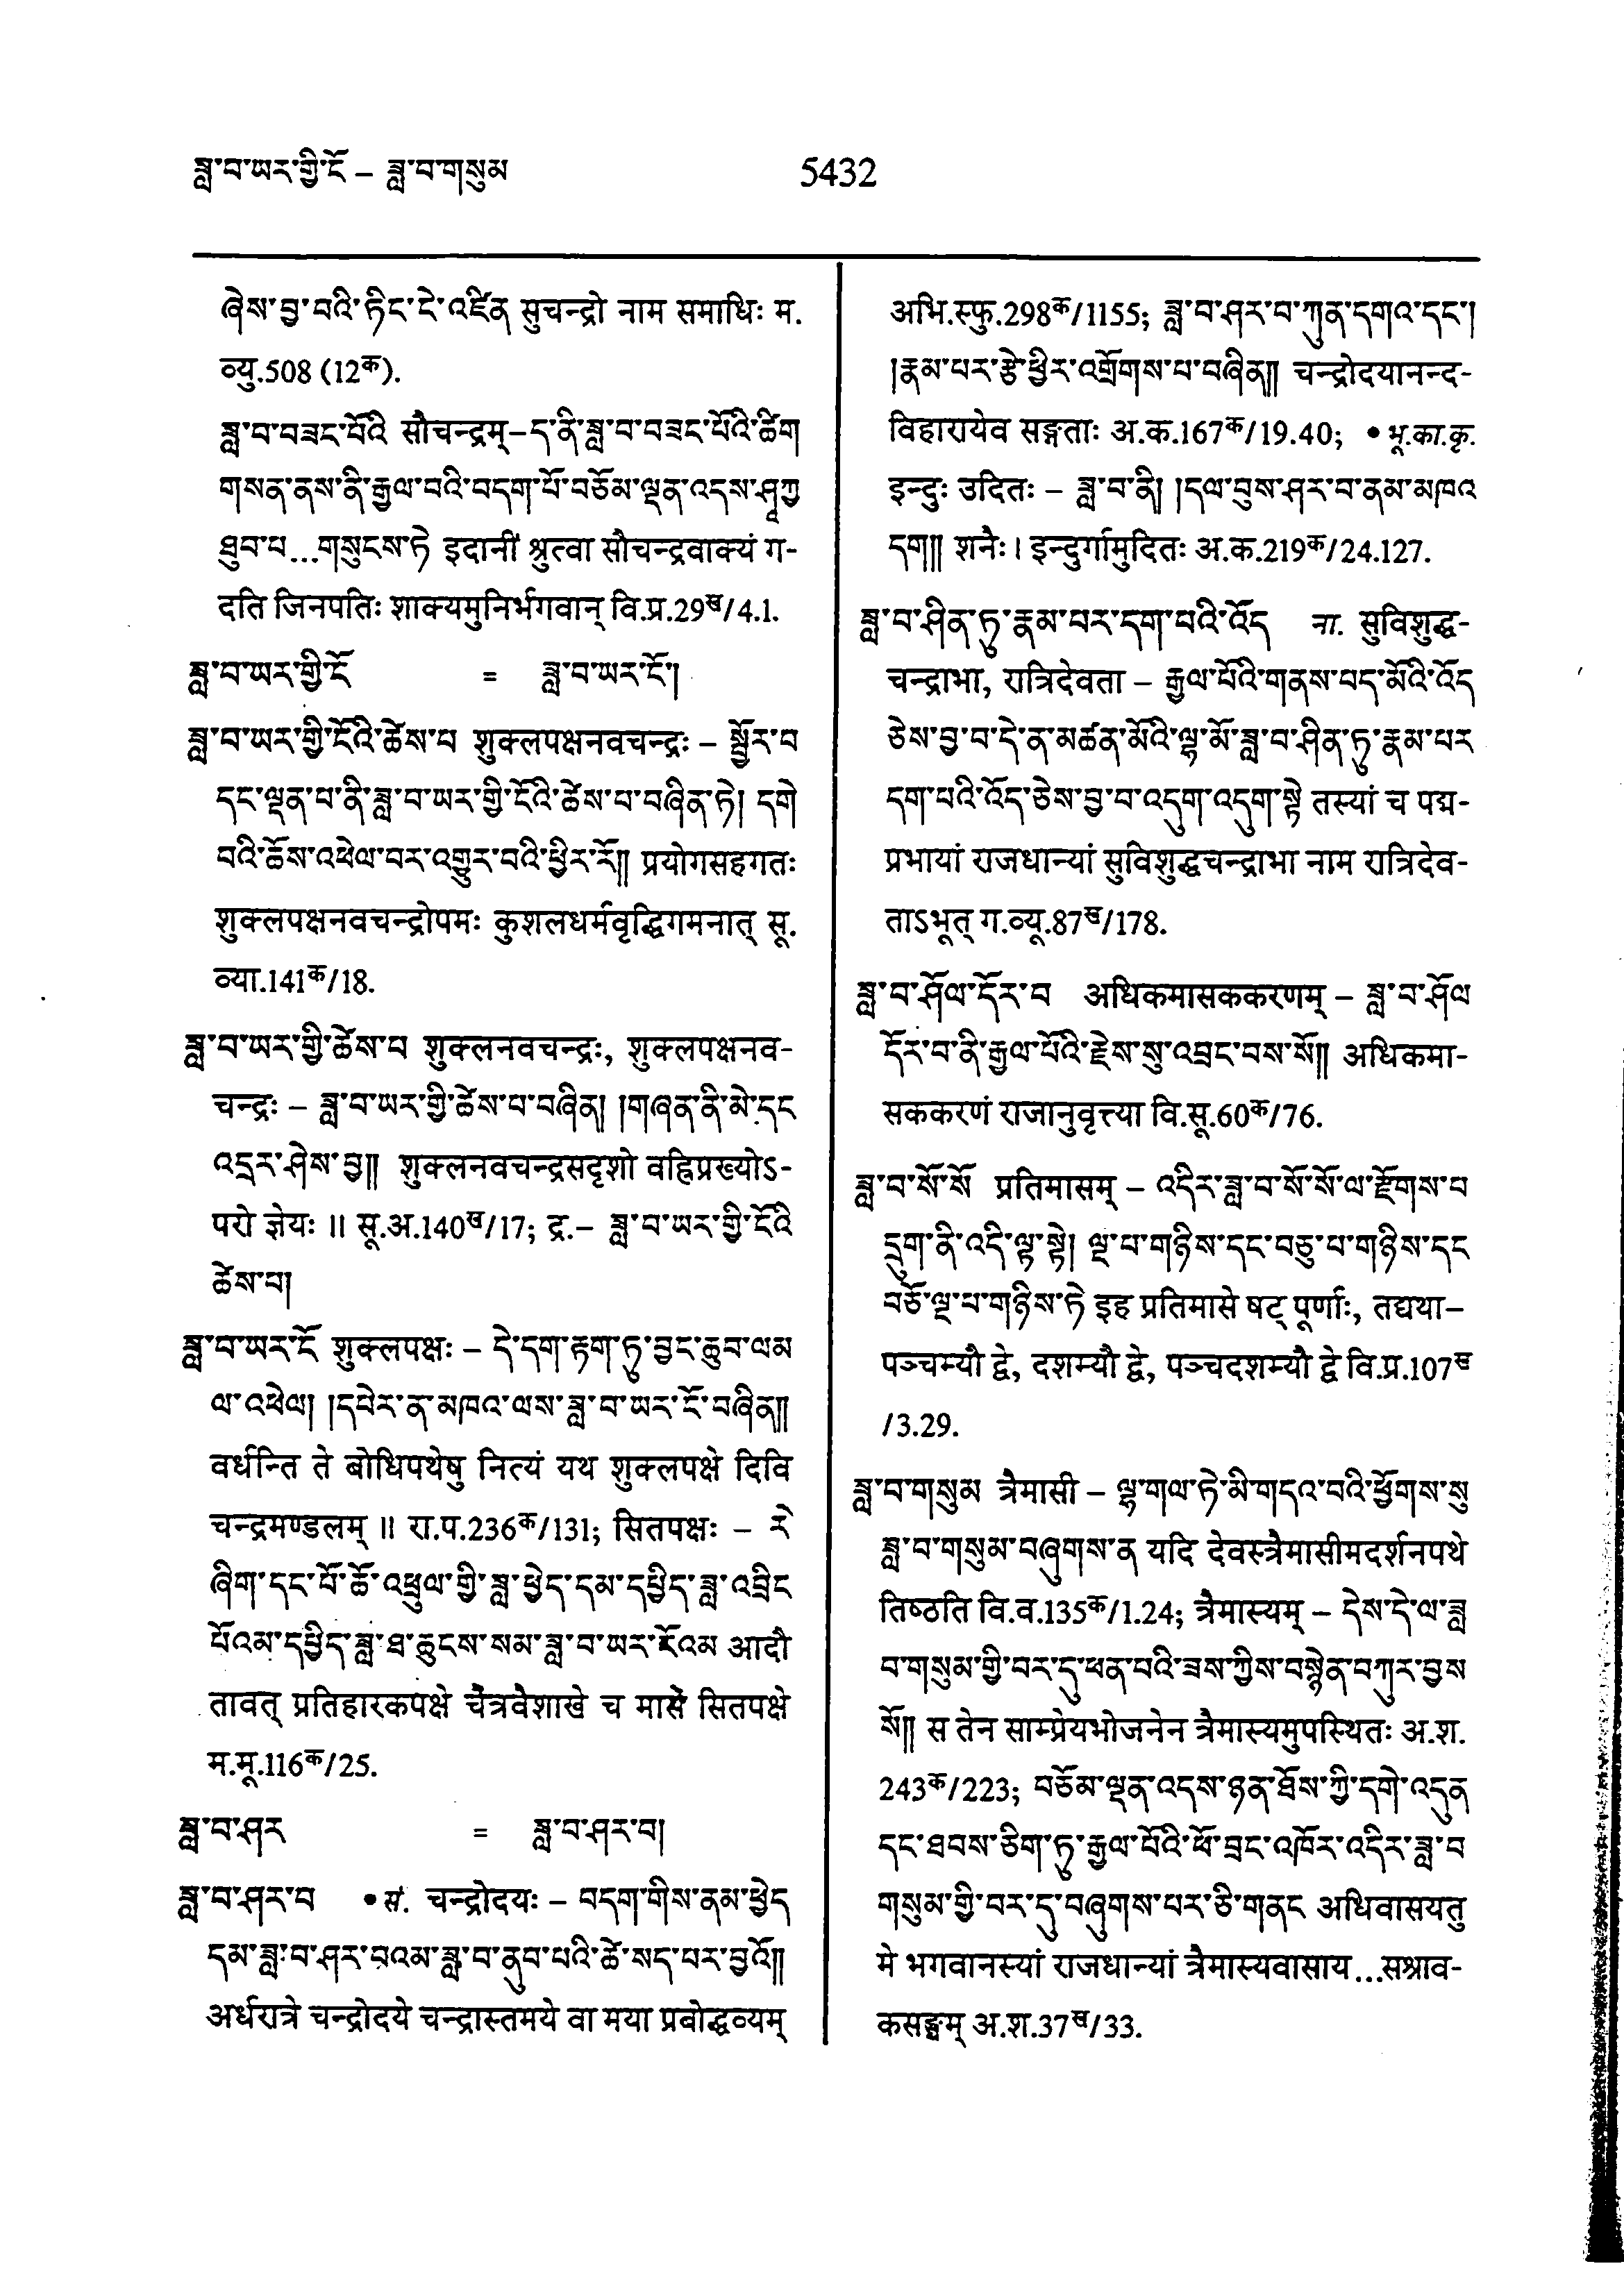 ཟླ་བ་ཡར་གྱི་ངོ – ཟླ་བ་གསུམ
5432
ཞེས་བྱ་བའི་ཏིང་ངེ་འཛིན सुचन्द्रो नाम समाधिः म.
व्यु.508 (12क).
ཟླ་བ་བཟང་པོའི सौचन्द्रम्–ད་ནི་ཟླ་བ་བཟང་པོའི་ཚིག
གསན་ནས་ནི་རྒྱལ་བའི་བདག་པོ་བཅོམ་ལྡན་འདས་ཤཱཀྱ
ཐུབ་པ...གསུངས་ཏེ इदानीं श्रुत्वा सौचन्द्रवाक्यं ग-
दति जिनपतिः शाक्यमुनिर्भगवान् वि.प्र.29ख/4.1.
ཟླ་བ་ཡར་གྱི་ངོ = ཟླ་བ་ཡར་ངོ།
ཟླ་བ་ཡར་གྱི་ངོའི་ཚེས་པ शुक्लपक्षनवचन्द्रः – སྦྱོར་བ
དང་ལྡན་པ་ནི་ཟླ་བ་ཡར་གྱི་ངོའི་ཚེས་པ་བཞིན་ཏེ། དགེ
བའི་ཆོས་འཕེལ་བར་འགྱུར་བའི་ཕྱིར་རོ།། प्रयोगसहगतः
शुक्लपक्षनवचन्द्रोपमः कुशलधर्मवृद्धिगमनात् सू.
व्या.141क/18.
ཟླ་བ་ཡར་གྱི་ཚེས་པ शुक्लनवचन्द्रः, शुक्लपक्षनव-
चन्द्रः – ཟླ་བ་ཡར་གྱི་ཚེས་པ་བཞིན། །གཞན་ནི་མེ་དང
འདྲར་ཤེས་བྱ།། शुक्लनवचन्द्रसदृशो वह्निप्रख्योऽ-
परो ज्ञेयः ॥ सू.अ.140ख/17; द्र.– ཟླ་བ་ཡར་གྱི་ངོའི
ཚེས་པ།
ཟླ་བ་ཡར་ངོ शुक्लपक्षः – དེ་དག་རྟག་ཏུ་བྱང་ཆུབ་ལམ
ལ་འཕེལ། །དཔེར་ན་མཁའ་ལས་ཟླ་བ་ཡར་ངོ་བཞིན།།
वर्धन्ति ते बोधिपथेषु नित्यं यथ शुक्लपक्षे दिवि
चन्द्रमण्डलम् ॥ रा.प.236क/131; सितपक्षः – རེ
ཞིག་དང་པོ་ཆོ་འཕྲུལ་གྱི་ཟླ་ཕྱེད་དམ་དཔྱིད་ཟླ་འབྲིང
པོའམ་དཔྱིད་ཟླ་ཐ་ཆུངས་སམ་ཟླ་བ་ཡར་ངོའམ आदौ
तावत् प्रतिहारकपक्षे चैत्रवैशाखे च मासे सितपक्षे
म.मू.116क/25.
ཟླ་བ་ཤར = ཟླ་བ་ཤར་བ།
ཟླ་བ་ཤར་བ • सं. चन्द्रोदयः – བདག་གིས་ནམ་ཕྱེད
དམ་ཟླ་བ་ཤར་བའམ་ཟླ་བ་ནུབ་པའི་ཚེ་སད་པར་བྱའོ།།
अर्धरात्रे चन्द्रोदये चन्द्रास्तमये वा मया प्रबोद्धव्यम्
अभि.स्फु.298क/1155; ཟླ་བ་ཤར་བ་ཀུན་དགའ་དང་།
།རྣམ་པར་རྩེ་ཕྱིར་འགྲོགས་པ་བཞིན།། चन्द्रोदयानन्द-
विहारायेव सङ्गताः अ.क.167क/19.40; • भू.का.कृ.
इन्दुः उदितः – ཟླ་བ་ནི། །དལ་བུས་ཤར་བ་ནམ་མཁའ
དག།། शनैः । इन्दुर्गामुदितः अ.क.219क/24.127.
ཟླ་བ་ཤིན་ཏུ་རྣམ་པར་དག་པའི་འོད ना. सुविशुद्ध-
चन्द्राभा, रात्रिदेवता – རྒྱལ་པོའི་གནས་པད་མོའི་འོད
ཅེས་བྱ་བ་དེ་ན་མཚན་མོའི་ལྷ་མོ་ཟླ་བ་ཤིན་ཏུ་རྣམ་པར
དག་པའི་འོད་ཅེས་བྱ་བ་འདུག་འདུག་སྟེ तस्यां च पद्म-
प्रभायां राजधान्यां सुविशुद्धचन्द्राभा नाम रात्रिदेव-
ताऽभूत् ग.व्यू.87ख/178.
ཟླ་བ་ཤོལ་དོར་བ अधिकमासककरणम् – ཟླ་བ་ཤོལ
དོར་བ་ནི་རྒྱལ་པོའི་རྗེས་སུ་འབྲང་བས་སོ།། अधिकमा-
सककरणं राजानुवृत्त्या वि.सू.60क/76.
ཟླ་བ་སོ་སོ प्रतिमासम् – འདིར་ཟླ་བ་སོ་སོ་ལ་རྫོགས་པ
དྲུག་ནི་འདི་ལྟ་སྟེ། ལྔ་པ་གཉིས་དང་བཅུ་པ་གཉིས་དང
བཅོ་ལྔ་པ་གཉིས་ཏེ इह प्रतिमासे षट् पूर्णाः, तद्यथा–
पञ्चम्यौ द्वे, दशम्यौ द्वे, पञ्चदशम्यौ द्वे वि.प्र.107ख
/3.29.
ཟླ་བ་གསུམ त्रैमासी – ལྷ་གལ་ཏེ་མི་གདའ་བའི་ཕྱོགས་སུ
ཟླ་བ་གསུམ་བཞུགས་ན यदि देवस्त्रैमासीमदर्शनपथे
तिष्ठति वि.व.135क/1.24; त्रैमास्यम् – དེས་དེ་ལ་ཟླ
བ་གསུམ་གྱི་བར་དུ་ཕན་པའི་ཟས་ཀྱིས་བསྙེན་བཀུར་བྱས
སོ།། स तेन साम्प्रेयभोजनेन त्रैमास्यमुपस्थितः अ.श.
243क/223; བཅོམ་ལྡན་འདས་ཉན་ཐོས་ཀྱི་དགེ་འདུན
དང་ཐབས་ཅིག་ཏུ་རྒྱལ་པོའི་ཕོ་བྲང་འཁོར་འདིར་ཟླ་བ
གསུམ་གྱི་བར་དུ་བཞུགས་པར་ཅི་གནང अधिवासयतु
मे भगवानस्यां राजधान्यां त्रैमास्यवासाय...सश्राव-
कसङ्घम् अ.श.37ख/33.